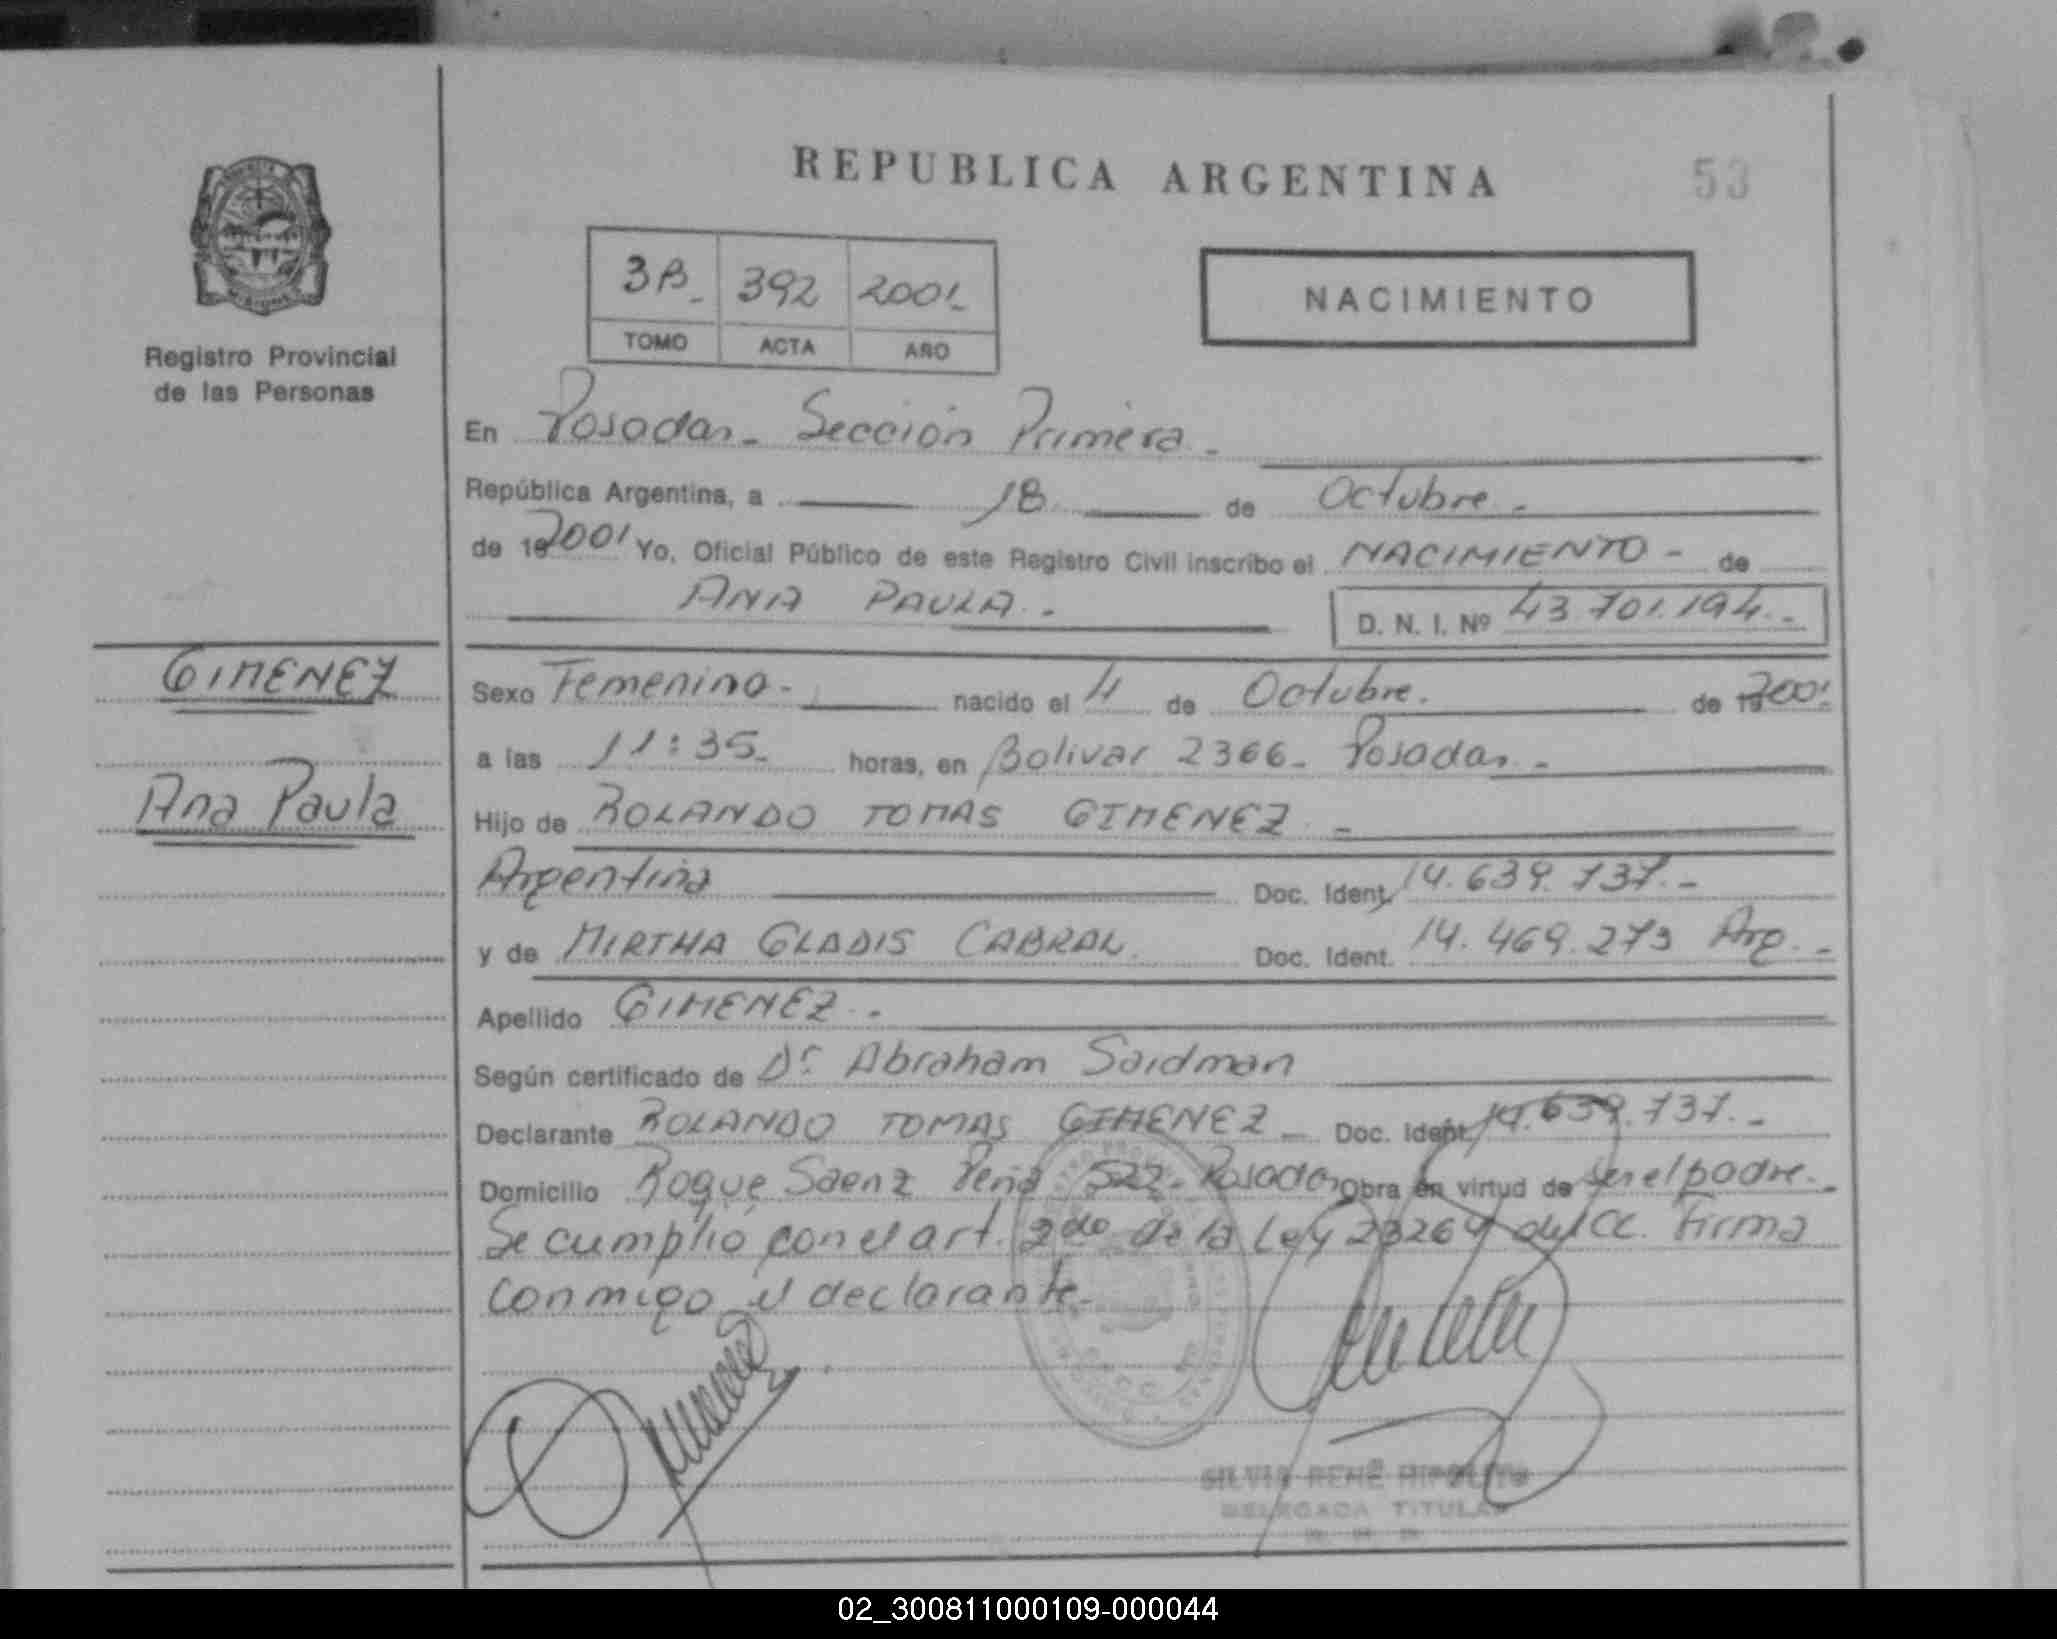 REPUBLICA ARGENTINA
53
3B 392 2001
TOMO ACTA AÑO
NACIMIENTO
Registro Provincial
de las Personas
En Posadas - Sección Primera -
República Argentina, a 18 de Octubre -
de 192001 Yo, Oficial Público de este Registro Civil inscribo el NACIMIENTO - de
ANA PAULA. -
D. N. I. Nº 43.701.194. -
GIMENEZ
Ana Paula
Sexo Femenino - nacido el 4 de Octubre. de 192001
a las 11:35 horas, en Bolivar 2366 - Posadas -
Hijo de ROLANDO TOMAS GIMENEZ -
Argentina Doc. Ident. 14.639.737. -
y de MIRTHA GLADIS CABRAL. Doc. Ident. 14.469.273 Arg. -
Apellido GIMENEZ. -
Según certificado de Dr. Abraham Saidman
Declarante ROLANDO TOMAS GIMENEZ - Doc. Ident. 14.639.737. -
Domicilio Roque Saenz Peña 522 - Posadas Obra en virtud de ser el padre. -
Se cumplió con el art. 2do de la Ley 23264 del CC. Firma
conmigo el declarante -
SILVIA RENÉ HIPOLITO
DELEGADA TITULAR
02_300811000109-000044